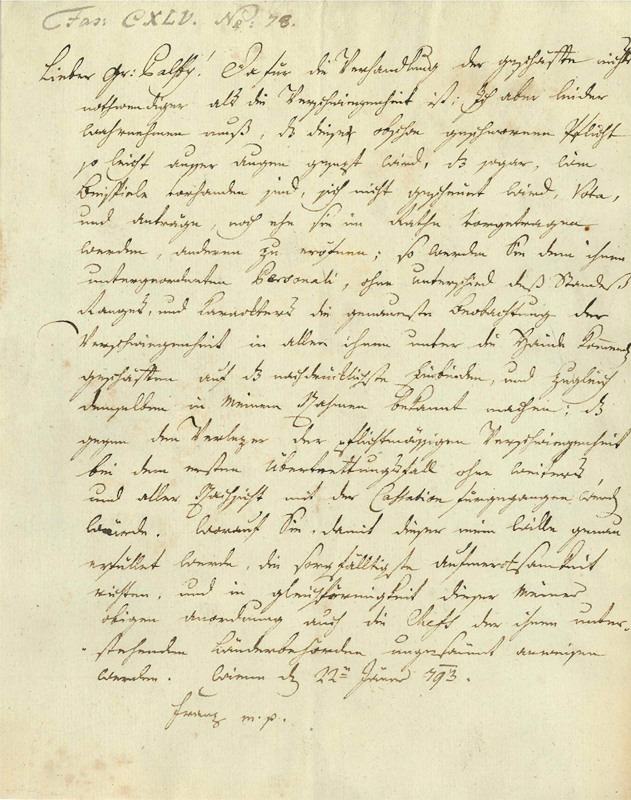 Fas: CXLV. No: 78.
Lieber Gr: Palfy! Da für die Verhandlung der geschäfte nichts
nothwendiger als die Verschwiegenheit ist; Ich aber leider
wahrnehmen muß, dß dieser obschon geschworenen Pflicht
so leicht ausser augen gesezt wird, dß sogar,
Beispiele vorhanden sind, sich nicht gescheuet wird, Vota,
und anträge, noch ehe sie im Rathe vorgetragen
werden, anderen zu eröfnen; so werden Sie dem ihnen
untergeordneten Personali, ohne unterschied deß Standeß
Ranges, und Karackters die genaueste Beobachtung der
Verschwiegenheit in allen ihnen unter die Hände Kommend
geschäften auf dß nachdrücklichste einbinden, und zugleich
demselben in Meinem Nahmen bekannt machen; dß
gegen den Verlezer der pflichtmässigen Verschwiegenheit
bei dem ersten Übertrettungsfall ohne weiters
und aller Nachsicht mit der Cassation fürgegangen werd
würde. Worauf Sie, damit dieser mein Wille genau
erfüllet werde, die sorgfälltigste aufmerksamkeit
richten, und in gleichförmigkeit dieser Meiner
obigen anordnung auch die Chefs der ihnen unter-
stehenden Länderbehörden ungesäumt anweisen
werden. Wienn d 22ten Jäner 793.
Franz m.p.